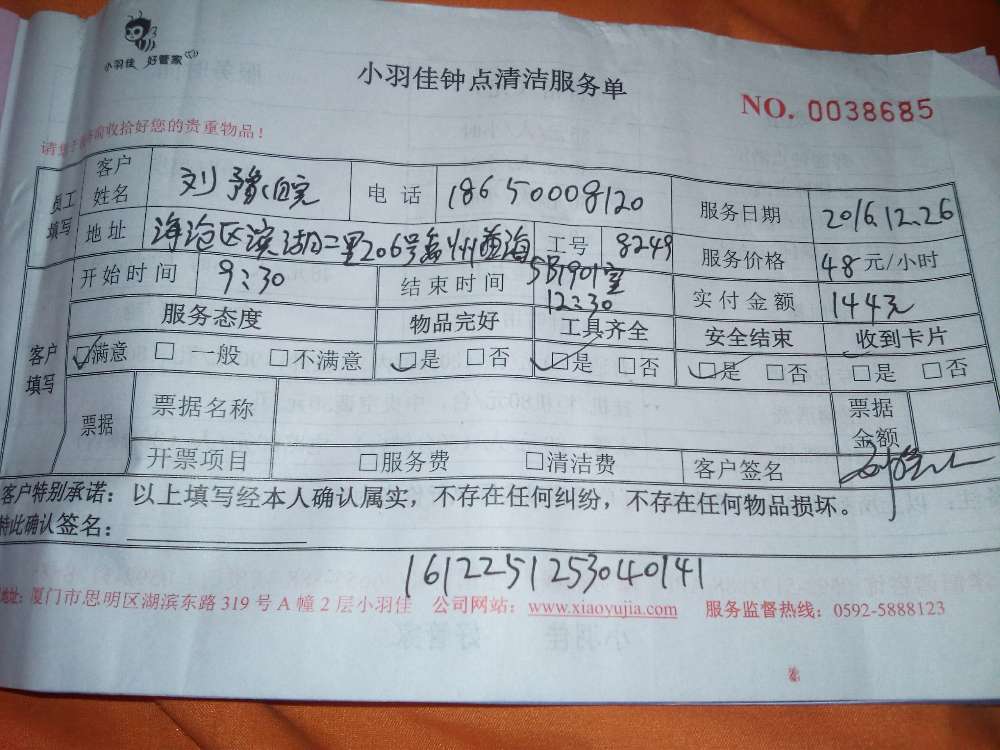 小羽佳 好管家
小羽佳钟点清洁服务单
NO. 0038685
收拾好您的贵重物品！
员工填写 客户姓名 刘豫皖 电话 18650008120 服务日期 2016.12.26
地址 海沧区滨湖二里206号 工号 8249 服务价格 48元/小时
5B1901室
开始时间 9:30 结束时间 12:30 实付金额 144元
客户填写 服务态度 物品完好 工具齐全 安全结束 收到卡片
☑满意 □一般 □不满意 ☑是 □否 ☑是 □否 ☑是 □否 □是 □否
票据 票据名称 票据金额
开票项目 □服务费 □清洁费 客户签名
客户特别承诺：以上填写经本人确认属实，不存在任何纠纷，不存在任何物品损坏。
特此确认签名：
1612251253040141
地址：厦门市思明区湖滨东路319号A幢2层小羽佳 公司网站：www.xiaoyujia.com 服务监督热线：0592-5888123